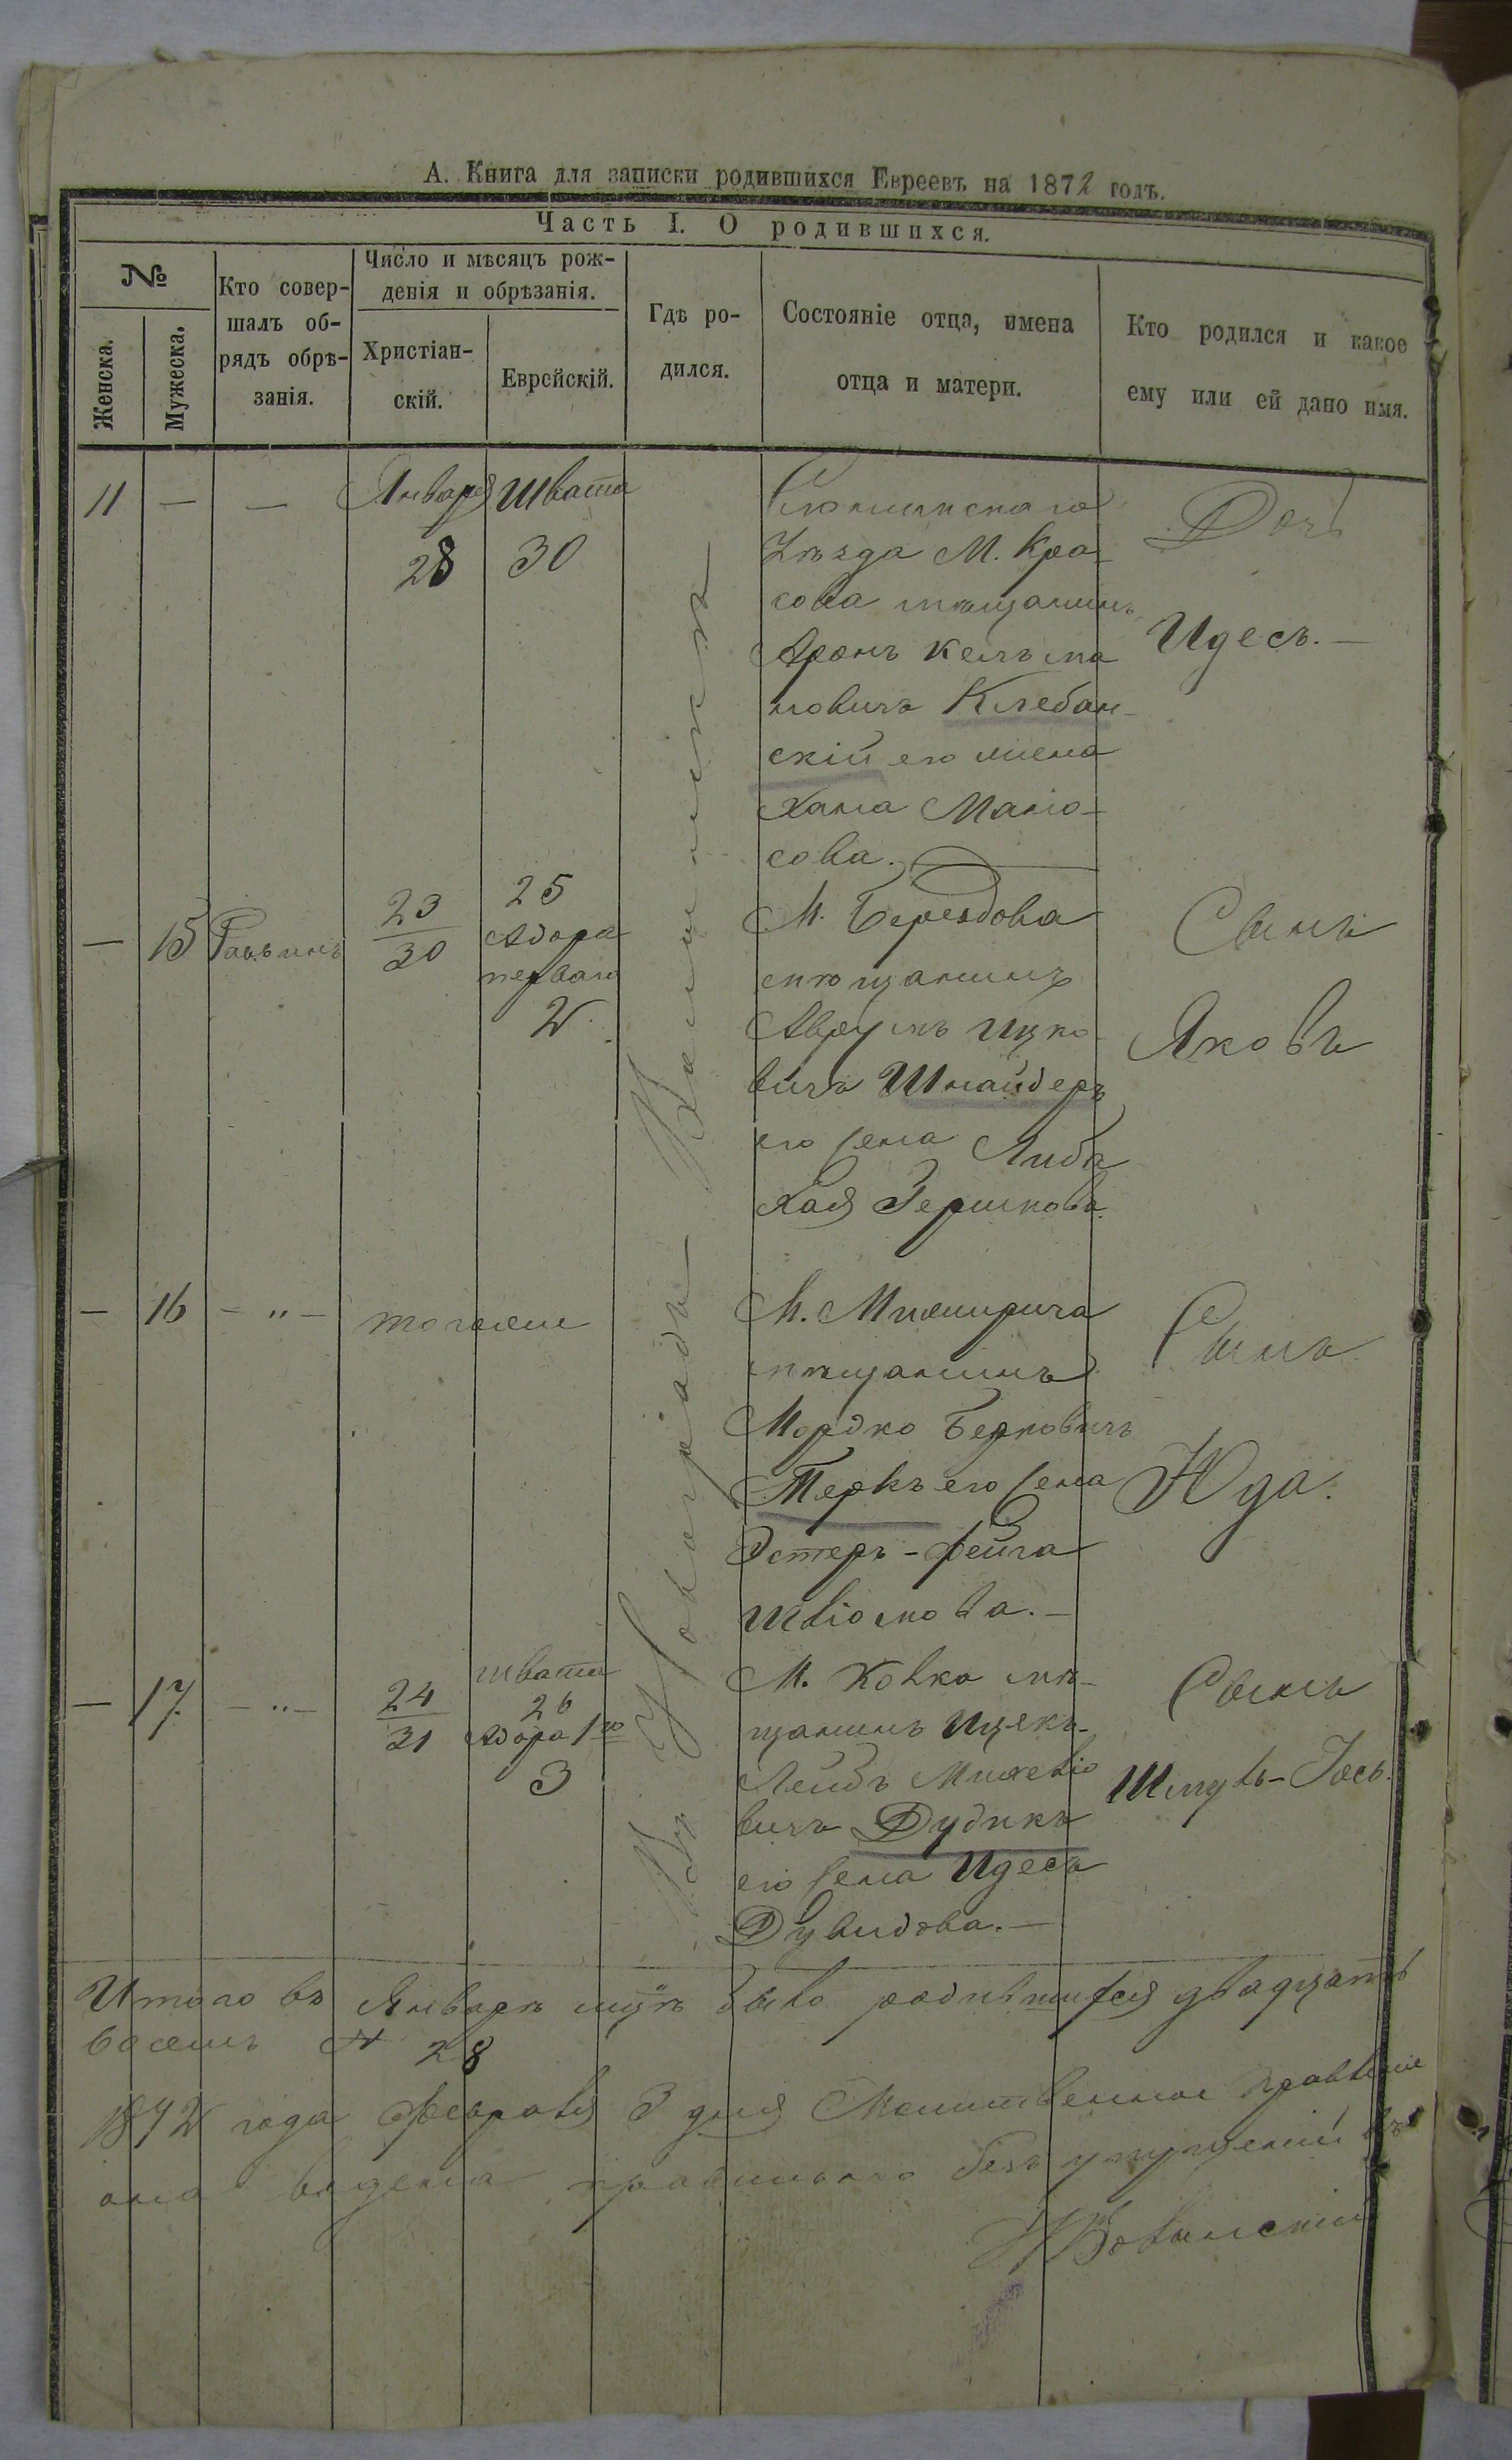 А. Книга для записки родившихся Евреевъ на 1872 годъ.
Часть I. О родившихся.
№
Женска.
Мужеска.
Кто совер-
шалъ об-
рядъ обрѣ-
занія.
Число и мѣсяцъ рож-
денія и обрѣзанія.
Христіан-
скій.
Еврейскій.
Гдѣ ро-
дился.
Состояніе отца, имена
отца и матери.
Кто родился и какое
ему или ей дано имя.
11 — — Января Швата
28 30
Слонимскаго
Уѣзда М. Кра-
сова мѣщанинъ
Аронъ Кельма
новичъ Клебан-
скій его жена
Хана
сова.
Дочь
Идесъ.—
— 15 Раввинъ
23
30
25
Адара
перваго
2
М. Берездова
мѣщанинъ
Аврумъ Ицко
вичъ Шнайдеръ
его жена Либа
Хая Гершкова.
Сынъ
Яковъ
— 16 – " – тогоже
М. Межирича
мѣщанинъ
Мордко Берковичъ
его жена
Эстеръ-Фейга
Сынъ
Юда.
— 17. – " –
24
31
Швата
26
Адара 1го
3
М. мѣ-
щанинъ Ицекъ-
Лейбъ
вичъ Дудикъ
его жена Идеса
Дувидова.—
Сынъ
Шмуль-Іось.
Въ Новоградъ Волынскѣ
Итого въ Январѣ м-цѣ было родившихся двадцать
восемь № 28
1872 года Февраля 3 дня
ведена правильно безъ упущеній